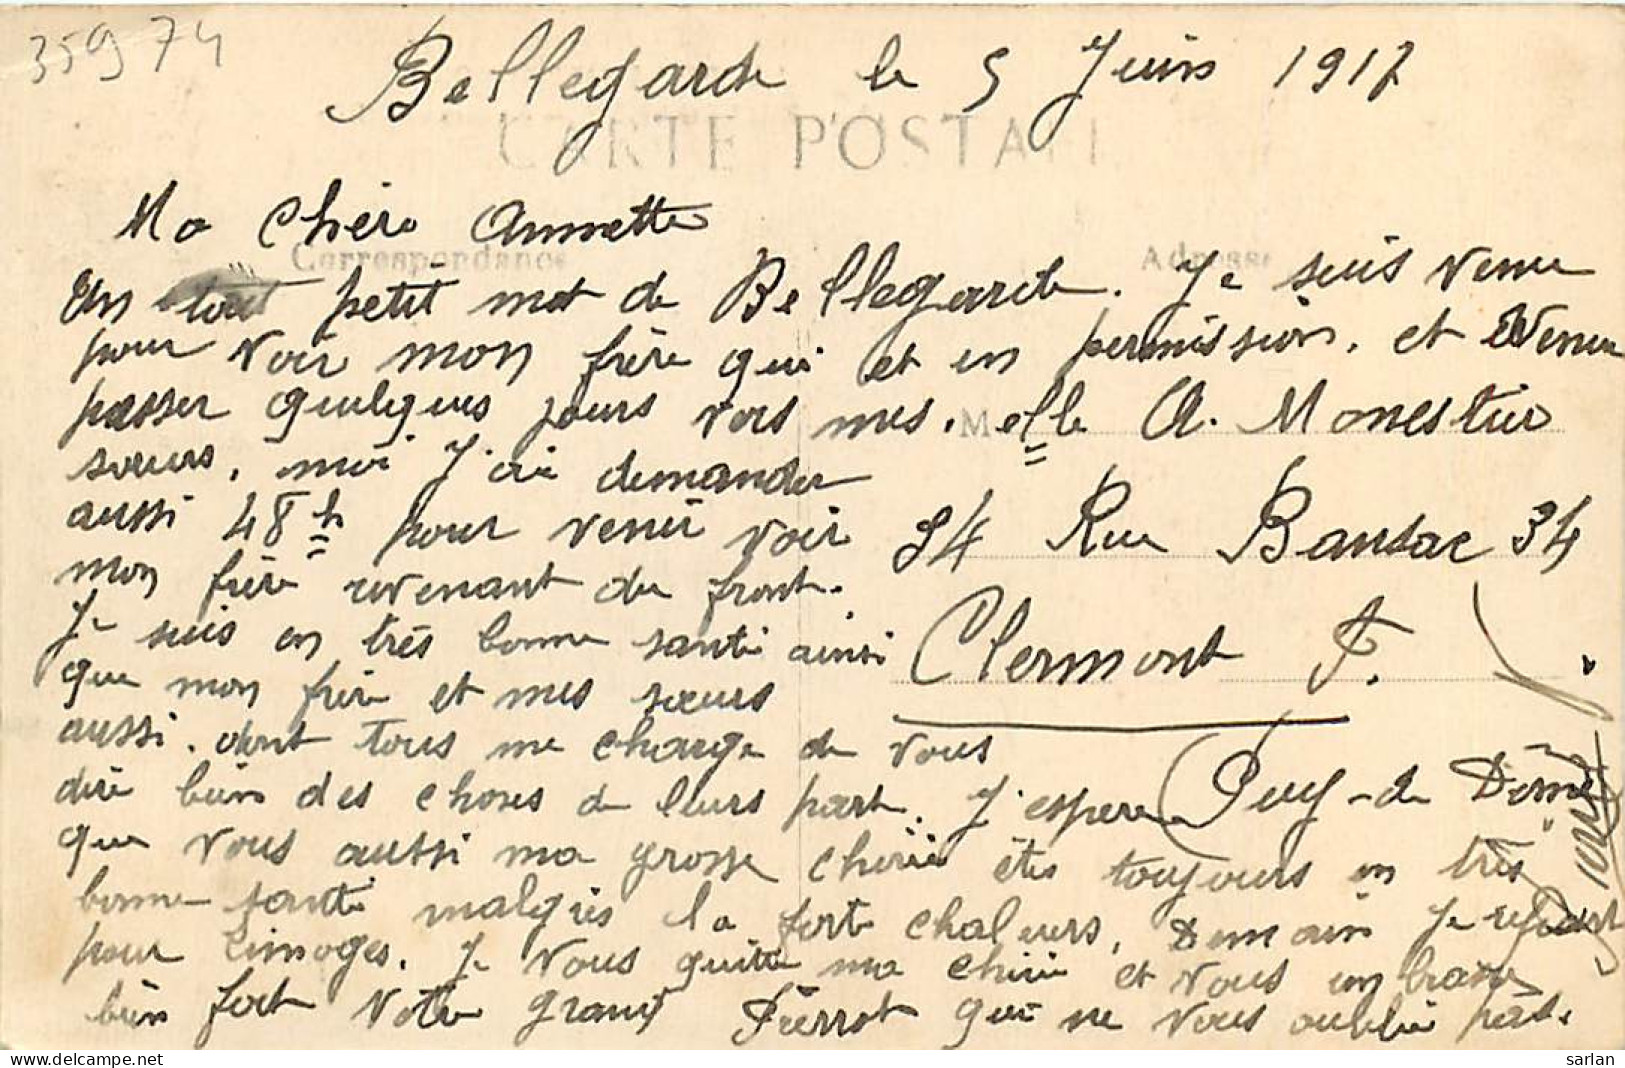 35974
Bellegarde le 5 Juin 1917
CARTE POSTALE
Ma Chère Annette
Correspondance
Adresse
Un tout petit mot de Bellegarde. Je suis venu
pour voir mon frère qui et en permission. et venu
passer quelques jours vers mes.
sœurs, moi J'ai demander
aussi 48 h pour venir voir
mon frère revenant du front.
Je suis en très bonne santé ainsi
que mon frère et mes sœurs
aussi. dont tous me charge de vous
dire bien des choses de leurs part. J'espère
que vous aussi ma grosse cherie êtes toujours en très
bonne santé malgrès la forte chaleurs, Demain Je repart
pour Limoges. Je vous quitte ma cherie et vous embrasse
bien fort Votre grand Pierrot qui ne vous oublie pas.
Melle A. Monestier
34 Rue Bansac 34
Clermont F.
(Puy-de Dôme)